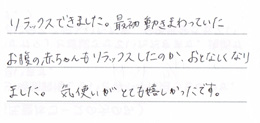 リラックスできました。最初動きまわっていた
お腹の赤ちゃんもリラックスしたのか、おとなしくなり
ました。気使いがとても嬉しかったです。